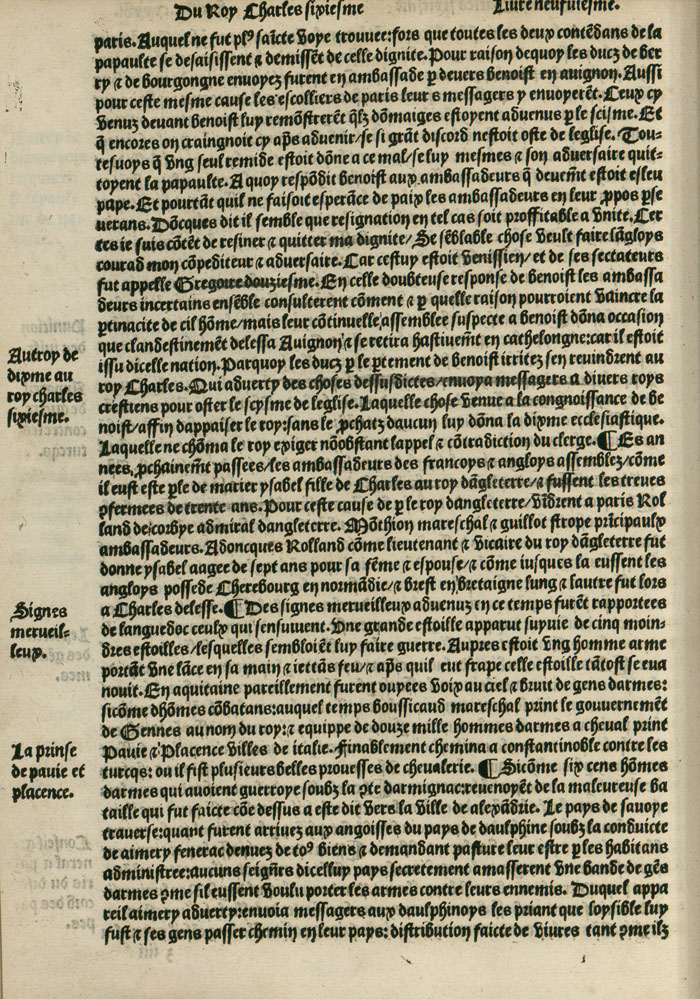 Du Roy Charles sixiesme
Livre neufuiesme.
paris. Auquel ne fut plꝰ saīcte voye trouuee: fors que toutes les deux contēdans de la
papaulte se desaisissent ⁊ demissēt de celle dignite. Pour raison dequoy les ducz de ber
ry ⁊ de bourgongne enuoyez furent en ambassade ꝑ deuers benoist en auignon. Aussi
pour ceste mesme cause les escolliers de paris leurs messagers y enuoyerēt. Ceux cy
venuz deuant benoist luy remōstrerēt q̄lz dōmaiges estoyent aduenus ꝑ le scisme. Et
q̄ encores on craingnoit cy aps̄ aduenir/ se si grāt discord nestoit oste de leglise. Tou-
tesuoys q̄ vng seul remide estoit dōne a ce mal/ se luy mesmes ⁊ son aduersaire quit-
toyent la papaulte. A quoy respōdit benoist aux ambassadeurs q̄ deuemēt estoit esleu
pape. Et pourtāt quil ne faisoit esperāce de paix les ambassadeurs en leur ꝓpos ꝑse
uerans. Dōcques dit il semble que resignation en tel cas soit proffitable a vnite. Cer
tes ie suis cōtēt de resiner ⁊ quitter ma dignite/ Se sēblable chose veult faire lāgloys
courad mon cōpediteur ⁊ aduersaire. Car cestuy estoit venissien/ et de ses sectateurs
fut appelle Gregoire douziesme. En celle doubteuse response de benoist les ambassa
deurs incertains ensēble consulterent cōment ⁊ ꝑ quelle raison pourroient vaincre la
ꝑtinacite de cil hōme/ mais leur cōtinuelle assemblee suspecte a benoist dōna occasion
que clandestinemēt delessa Auignon ⁊ se retira hastiuemēt en cathelongne: car il estoit
issu dicelle nation. Parquoy les ducz ꝑ le ꝑtement de benoist irritez sen reuindrent au
roy Charles. Qui aduerty des choses dessusdictes/ enuoya messagers a diuers roys
crestiens pour oster le scysme de leglise. Laquelle chose venue a la congnoissance de be
noist/ affin dappaiser le roy: sans le ꝓchatz daucun luy dōna la dixme ecclesiastique.
Laquelle ne chōma le roy exiger nōobstant lappel ⁊ cōtradiction du clerge. ¶ Es an
nees ꝓchainemēt passees/ les ambassadeurs des francoys ⁊ angloys assemblez/ cōme
il eust este ꝑle de marier ysabel fille de Charles au roy dāgleterre/ ⁊ fussent les treues
ꝯfermees de trente ans. Pour ceste cause de ꝑ le roy dangleterre/ vīdrent a paris Rol
land de corbye admiral dangleterre. Mōthion mareschal ⁊ guillot strope prīcipaulx
ambassadeurs. Adoncques Rolland cōme lieutenant ⁊ vicaire du roy dāgleterre fut
donne ysabel aagee de sept ans pour sa fēme ⁊ espouse/ ⁊ cōme iusques la eussent les
angloys possede Cherebourg en normādie/ ⁊ brest en bretaigne lung ⁊ lautre fut lors
a Charles delesse. ¶ Des signes merueilleux aduenuz en ce temps furēt rapportees
de languedoc ceulx qui sensuiuent. Vne grande estoille apparut suyuie de cinq moin-
dres estoilles/ lesquelles sembloiēt luy faire guerre. Aupres estoit vng homme arme
portāt vne lāce en sa main ⁊ iettās feu/ ⁊ aps̄ quil eut frape celle estoille tātost se eua
nouit. En aquitaine pareillement furent ouyees voix au ciel ⁊ bruit de gens darmes:
sicōme dhōmes cōbatans: auquel temps boussicaud mareschal print le gouuernemēt
de Gennes au nom du roy: ⁊ equippe de douze mille hommes darmes a cheval print
Pauie ⁊ Placence villes de italie. Finablement chemina a constantinoble contre les
turcqs: ou il fist plusieurs belles prouesses de cheualerie. ¶ Sicōme six cens hōmes
darmes qui auoient guerroye soubz la ꝯte darmignac: reuenoyēt de la maleureuse ba
taille qui fut faicte cōe dessus a este dit vers la ville de alexādrie. Le pays de sauoye
trauerse: quant furent arriuez aux angoisses du pays de daulphine soubz la conduicte
de aimery fenerac denuez de toꝰ biens ⁊ demandant pasture leur estre ꝑ les habitans
administree: aucuns seigñrs dicelluy pays secretement amasserent vne bande de gēs
darmes ꝯme sil eussent voulu porter les armes contre leurs ennemis. Duquel appa
reil aimery aduerty: enuoia messagers aux daulphinoys les priant que loysible luy
fust ⁊ ses gens passer chemin en leur pays: distribution faicte de viures tant ꝯme ilz
Autroy de
dixme au
roy charles
sixiesme.
Signes
merueil-
leux.
La prinse
de pauie et
placence.